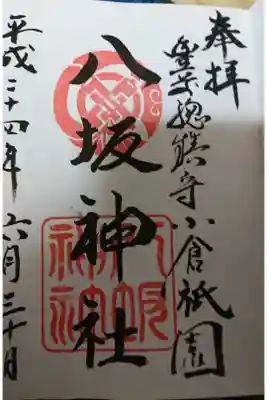 奉拝
豊前総鎮守小倉祇園
八坂神社
八坂神社
平成二十四年六月三十日